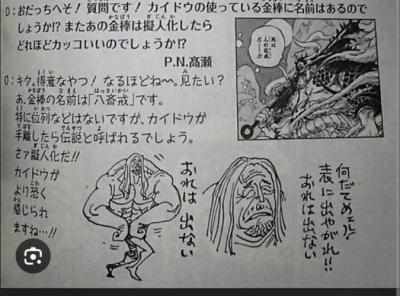 D：おだっちへそ！質問です！カイドウの使っている金棒に名前はあるので
しょうか!? またあの金棒は擬人化したら
どれほどカッコいいのでしょうか!?
P.N.髙瀬
O：キタ。得意なやつ！なるほどね〜。見たい？
あ、金棒の名前は「八斎戒」です。
特に位列などはないですが、カイドウが
手離したら伝説と呼ばれるでしょう。
さァ擬人化だ!!
カイドウが
より恐く
感じられ
ますね…!!
おれは出ない
何だてめェ!!
表に出やがれ!!
おれは出ない